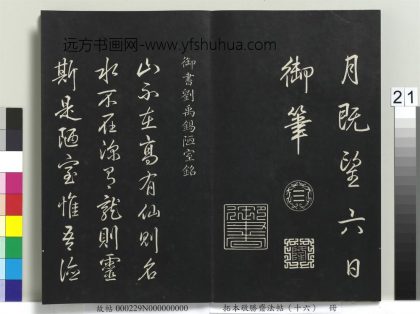 远方书画网-www.yfshuhua.com
月既望六日
御筆
御書劉禹錫陋室銘
山不在高有仙則名
水不在深有龍則靈
斯是陋室惟吾德
21
故帖 000229N000000000 拓本敬勝齋法帖（十六） 冊